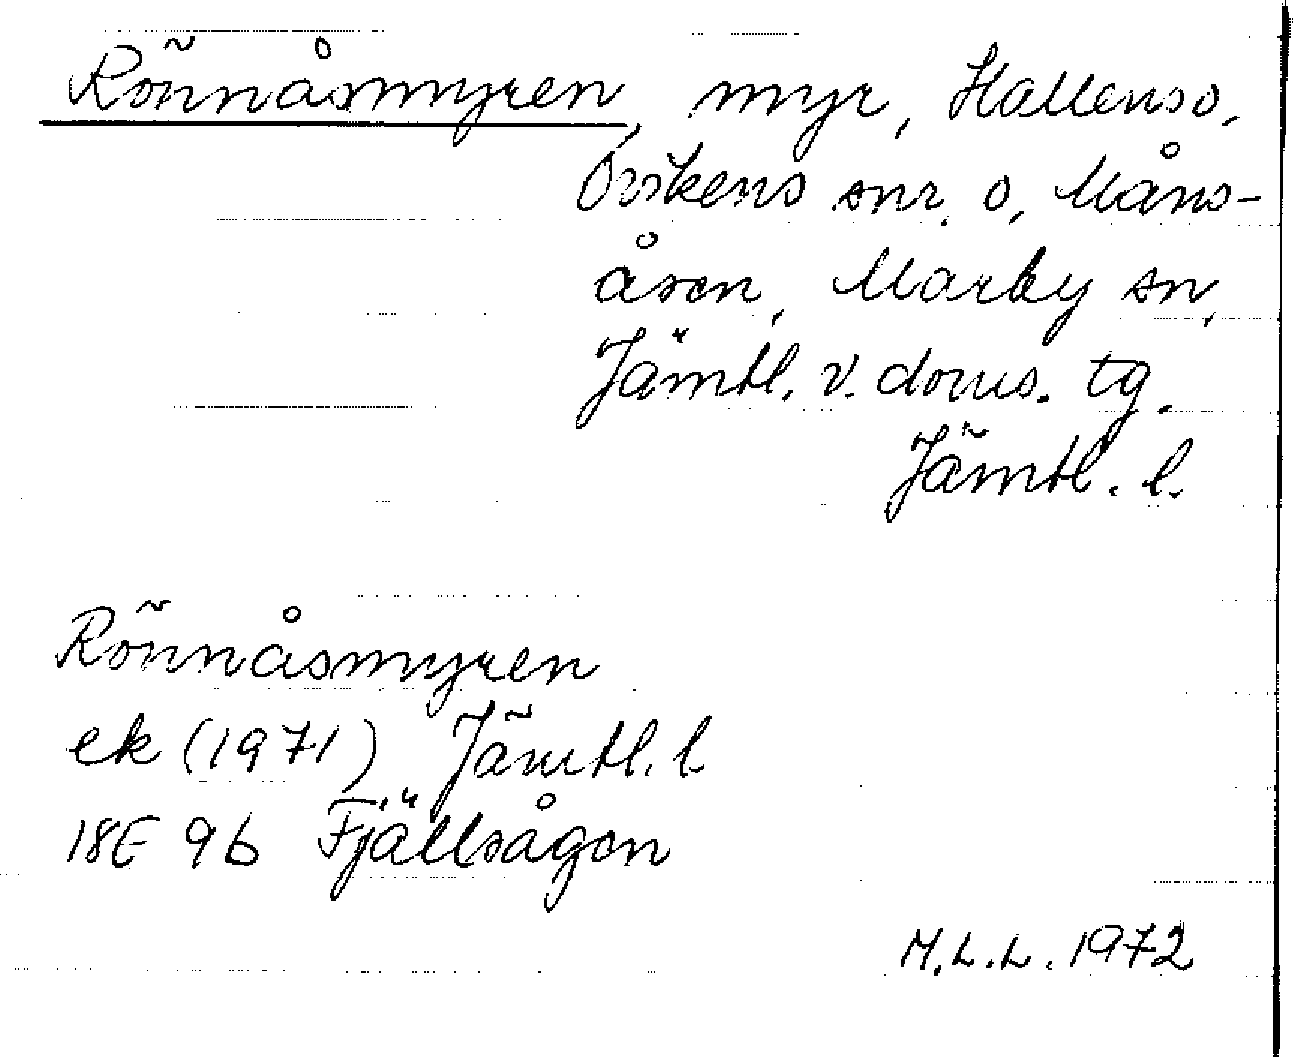 Rönnåsmyren, myr, Hallens o.
Ovikens snr. o. Måns-
åsen, Marby sn,
Jämtl. v. doms. tg.
Jämtl. l.
Rönnåsmyren
ek (1971) Jämtl. l
18E 9b Fjällsågen
M.L.L. 1972